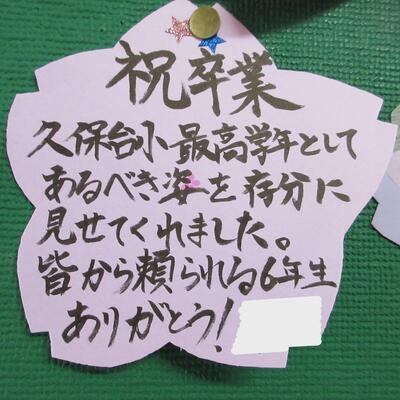 祝卒業
久保台小最高学年として
あるべき姿を存分に
見せてくれました。
皆から頼られる6年生
ありがとう!